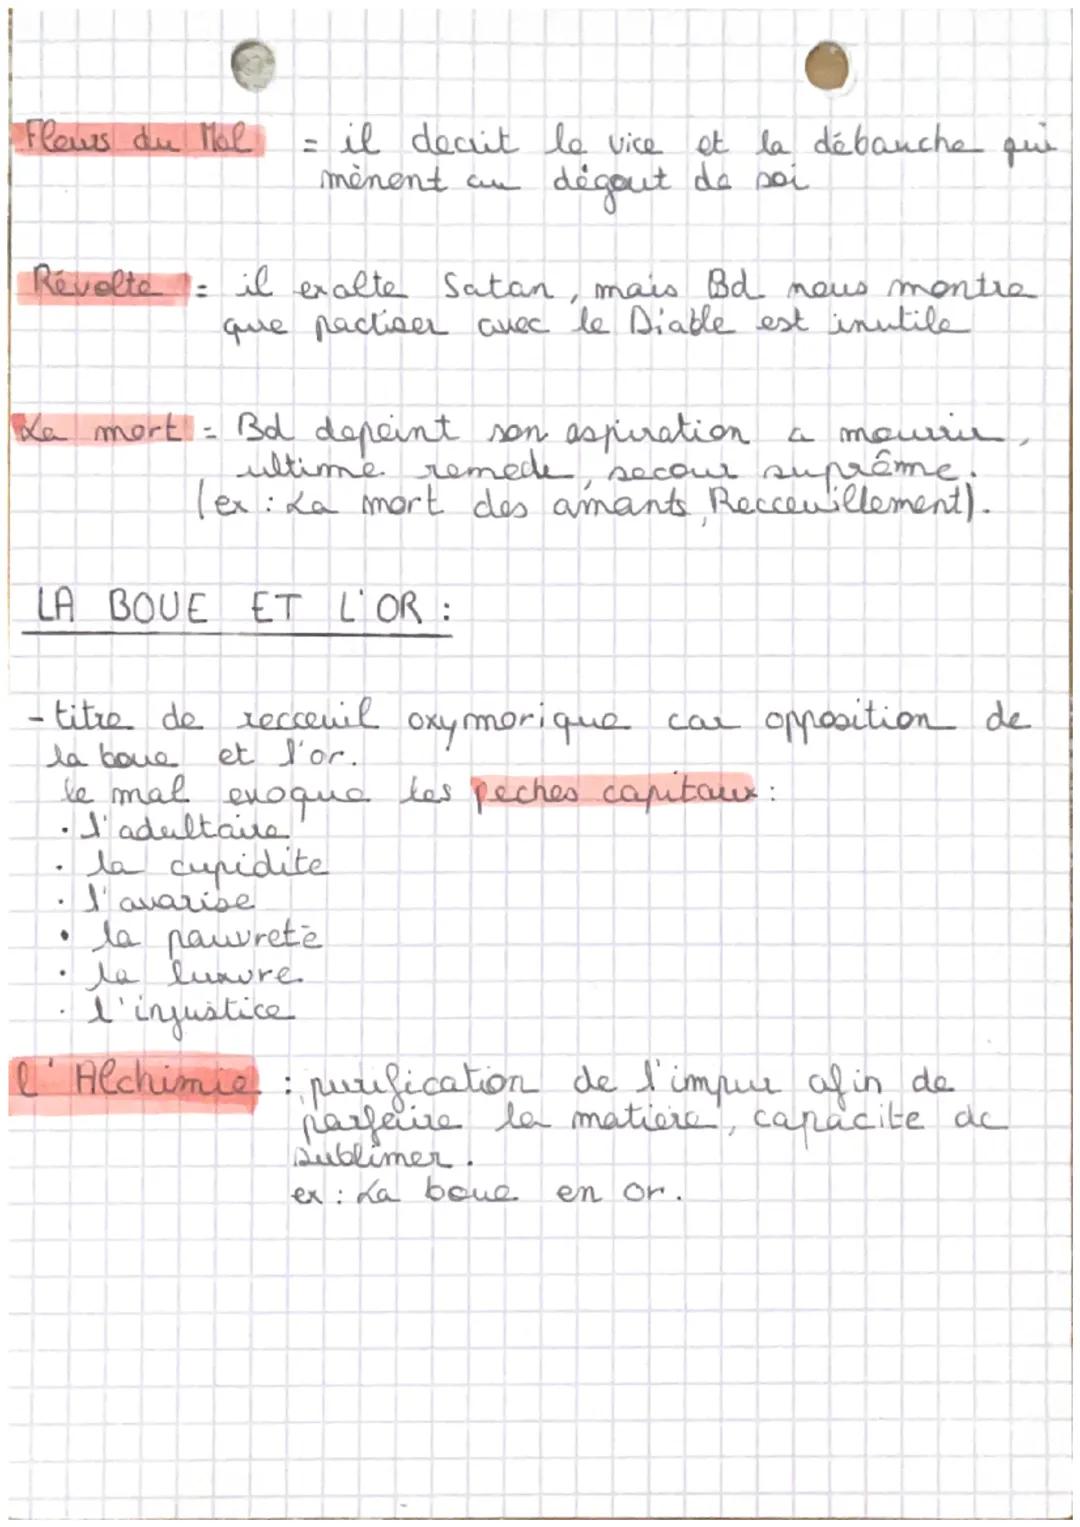 Fleurs du Mal = il decrit le vice et la débauche qui
mènent au dégout de soi
Révolte = il exalte Satan, mais Bd nous montre
que pactiser avec le Diable est inutile
La mort = Bd depeint son aspiration a mourir,
ultime remede, secour suprême.
(ex : La mort des amants, Recceuillement).
LA BOUE ET L'OR :
- titre de recceuil oxymorique car opposition de
la boue et l'or.
le mal evoque les peches capitaux :
· l'adultaire
· la cupidite
· l'avarise
· la pauvreté
· la luxure
· l'injustice
l'Alchimie : purification de l'impur afin de
parfaire la matiere, capacite de
sublimer.
ex : La boue en or.